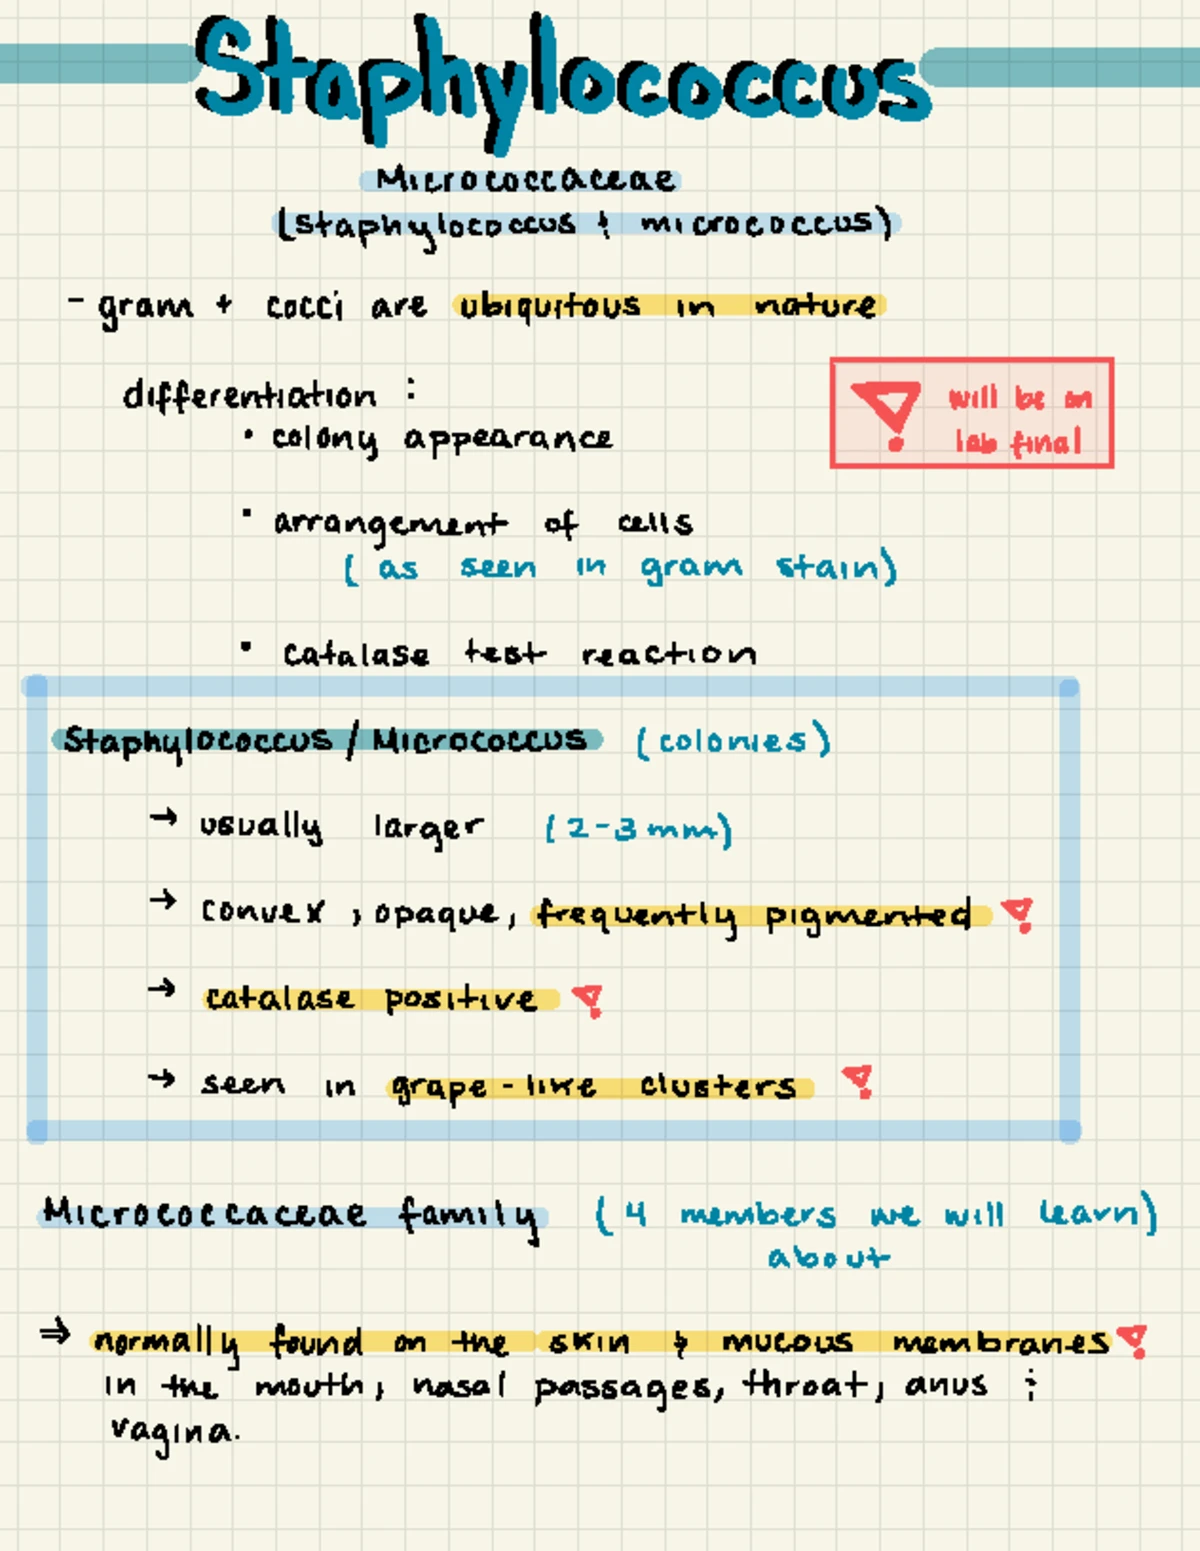 Staphylococcus
Micrococcaceae
(staphylococcus & micrococcus)
- gram + cocci are ubiquitous in nature
differentiation :
• colony appearance
will be on
lab final
• arrangement of cells
( as seen in gram stain)
• catalase test reaction
Staphylococcus / Micrococcus (colonies)
→ usually larger (2-3mm)
→ convex , opaque, frequently pigmented
→ catalase positive
→ seen in grape-like clusters
Micrococcaceae family (4 members we will learn)
about
⇒ normally found on the skin & mucous membranes
in the mouth, nasal passages, throat, anus &
vagina.